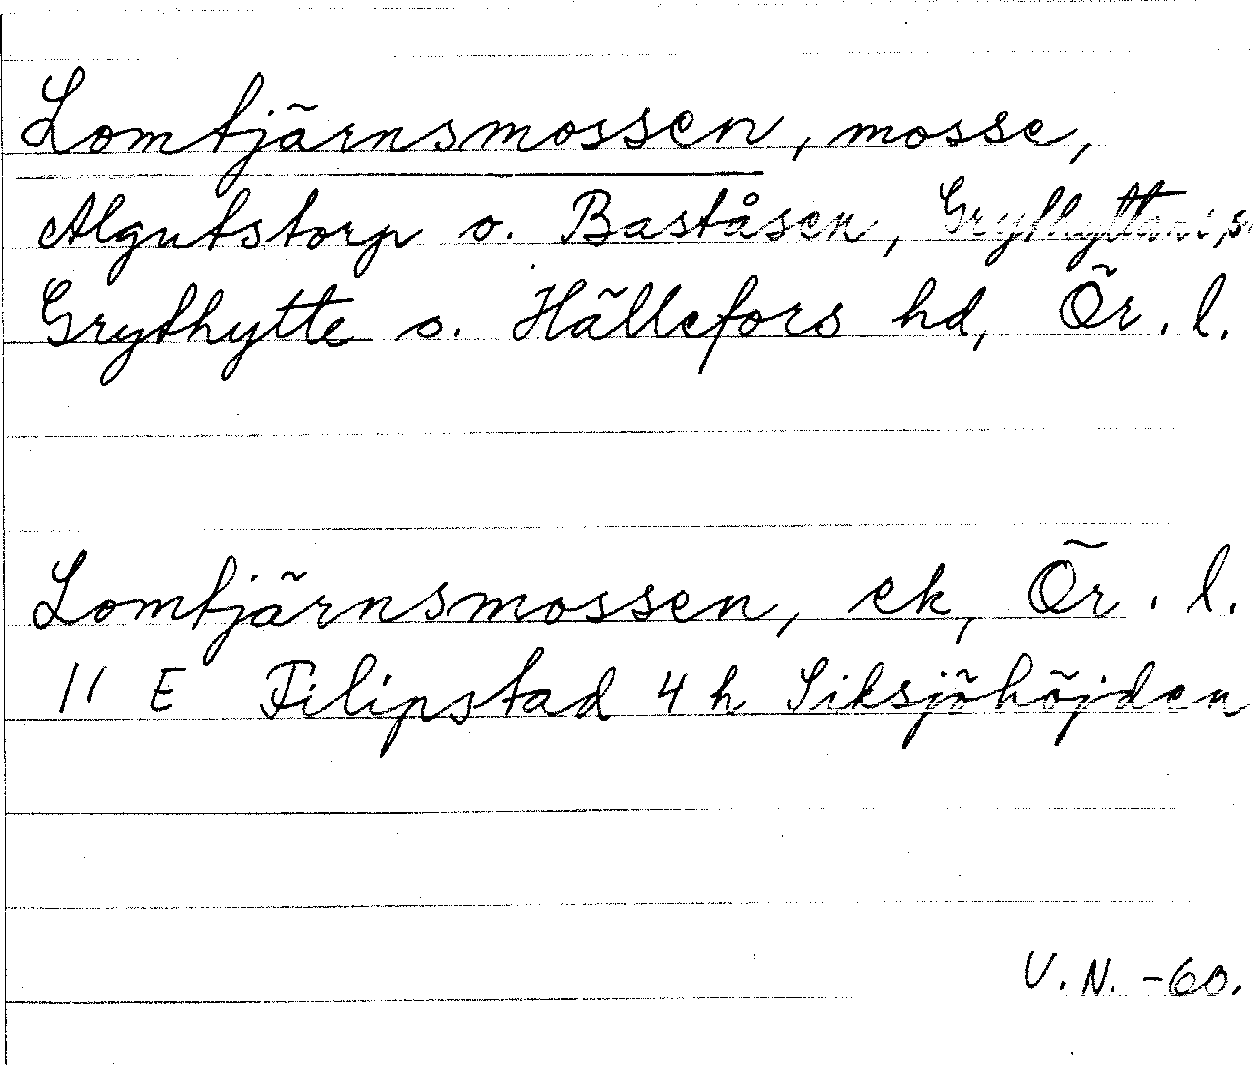 Lomtjärnsmossen, mosse,
Algutstorp o. Baståsen, Grythyttans s.
Grythytte o. Hällefors hd, Ör. l.
Lomtjärnsmossen, ek, Ör. l.
11 E Filipstad 4 h Siksjöhöjden
V.N. -60.